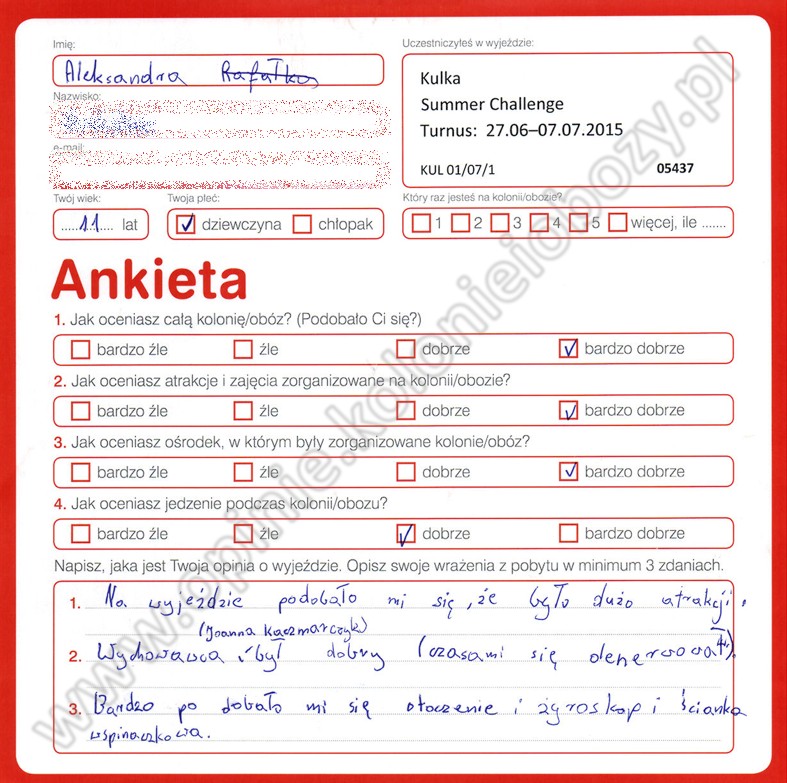 Imię:
Uczestniczyłeś w wyjeździe:
Aleksandra Rafałko
Kulka
Summer Challenge
Turnus: 27.06–07.07.2015
KUL 01/07/1 05437
Nazwisko:
e-mail:
Twój wiek:
Twoja płeć:
Który raz jesteś na kolonii/obozie?
.....11.... lat
dziewczyna chłopak
1 2 3 4 5 więcej, ile .......
Ankieta
1. Jak oceniasz całą kolonię/obóz? (Podobało Ci się?)
bardzo źle źle dobrze bardzo dobrze
2. Jak oceniasz atrakcje i zajęcia zorganizowane na kolonii/obozie?
bardzo źle źle dobrze bardzo dobrze
3. Jak oceniasz ośrodek, w którym były zorganizowane kolonie/obóz?
bardzo źle źle dobrze bardzo dobrze
4. Jak oceniasz jedzenie podczas kolonii/obozu?
bardzo źle źle dobrze bardzo dobrze
Napisz, jaka jest Twoja opinia o wyjeździe. Opisz swoje wrażenia z pobytu w minimum 3 zdaniach.
1. Na wyjeździe podobało mi się, że było dużo atrakcji.
(Joanna Kaczmarczyk)
2. Wychowawca był dobry (czasami się denerwował).
3. Bardzo po dobało mi się otoczenie i żyroskop i ścianka
wspinaczkowa.
www.opinie.kolonieiobozy.pl